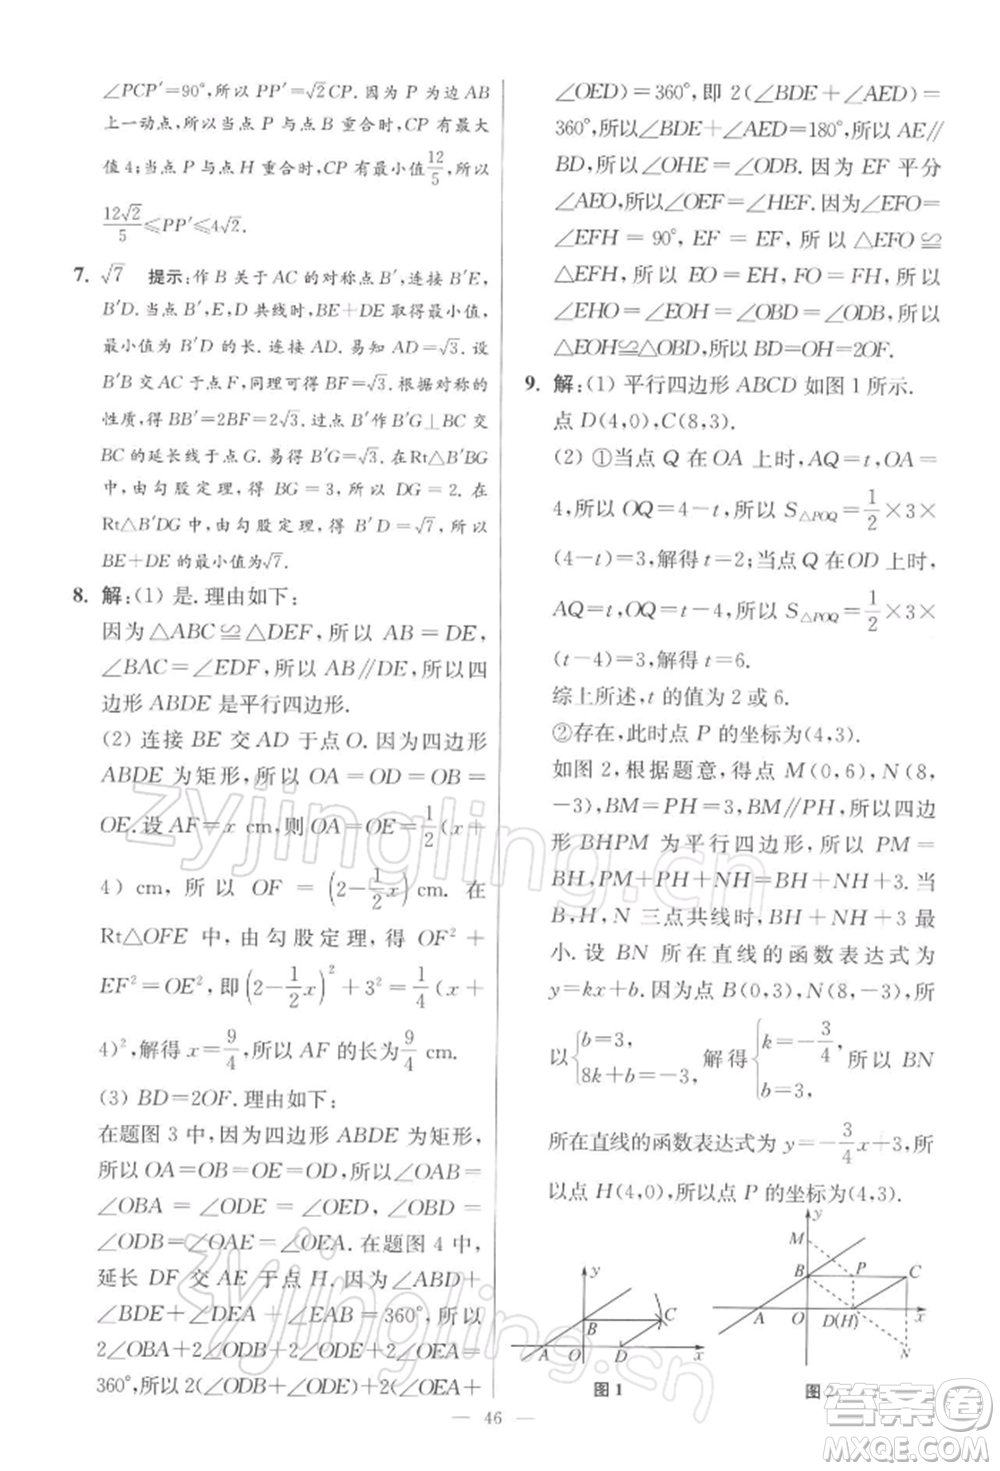 ∠PCP′=90°,所以 PP′=√2CP.因为 P 为边 AB
上一动点,所以当点 P 与点 B 重合时,CP 有最大
值 4;当点 P 与点 H 重合时,CP 有最小值12/5,所以
12√2/5≤PP′≤4√2.
7. √7 提示:作 B 关于 AC 的对称点 B′,连接 B′E,
B′D.当点 B′,E,D 共线时,BE+DE 取得最小值,
最小值为 B′D 的长.连接 AD.易知 AD=√3.设
B′B 交 AC 于点 F,同理可得 BF=√3.根据对称的
性质,得 BB′=2BF=2√3.过点 B′作 B′G⊥BC 交
BC 的延长线于点 G.易得 B′G=√3.在 Rt△B′BG
中,由勾股定理,得 BG=3,所以 DG=2.在
Rt△B′DG 中,由勾股定理,得 B′D=√7,所以
BE+DE 的最小值为√7.
8. 解:(1) 是.理由如下:
因为△ABC≌△DEF,所以 AB=DE,
∠BAC=∠EDF,所以 AB∥DE,所以四
边形 ABDE 是平行四边形.
(2) 连接 BE 交 AD 于点 O.因为四边形
ABDE 为矩形,所以 OA=OD=OB=
OE.设 AF=x cm,则 OA=OE=1/2(x+
4) cm,所以 OF=(2-1/2x)cm.在
Rt△OFE 中,由勾股定理,得 OF²+
EF²=OE²,即(2-1/2x)²+3²=1/4(x+
4)²,解得 x=9/4,所以 AF 的长为9/4 cm.
(3) BD=2OF.理由如下:
在题图 3 中,因为四边形 ABDE 为矩形,
所以 OA=OB=OE=OD,所以∠OAB
=∠OBA=∠ODE=∠OED,∠OBD
=∠ODB=∠OAE=∠OEA.在题图 4 中,
延长 DF 交 AE 于点 H.因为∠ABD+
∠BDE+∠DEA+∠EAB=360°,所以
2∠OBA+2∠ODB+2∠ODE+2∠OEA=
360°,所以 2(∠ODB+∠ODE)+2(∠OEA+
∠OED)=360°,即 2(∠BDE+∠AED)=
360°,所以∠BDE+∠AED=180°,所以 AE∥
BD,所以∠OHE=∠ODB.因为 EF 平分
∠AEO,所以∠OEF=∠HEF.因为∠EFO=
∠EFH=90°,EF=EF,所以△EFO≌
△EFH,所以 EO=EH,FO=FH,所以
∠EHO=∠EOH=∠OBD=∠ODB,所以
△EOH≌△OBD,所以 BD=OH=2OF.
9. 解:(1) 平行四边形 ABCD 如图 1 所示.
点 D(4,0),C(8,3).
(2) ①当点 Q 在 OA 上时,AQ=t,OA=
4,所以 OQ=4-t,所以 S△POQ=1/2×3×
(4-t)=3,解得 t=2;当点 Q 在 OD 上时,
AQ=t,所以 OQ=t-4,所以 S△POQ=1/2×3×
(t-4)=3,解得 t=6.
综上所述,t 的值为 2 或 6.
②存在,此时点 P 的坐标为(4,3).
如图 2,根据题意,得点 M(0,6),N(8,
-3),BM=PH=3,BM∥PH,所以四边
形 BHPM 为平行四边形,所以 PM=
BH,PM+PH+NH=BH+NH+3.当
B,H,N 三点共线时,BH+NH+3 最
小.设 BN 所在直线的函数表达式为
y=kx+b.因为点 B(0,3),N(8,-3),所
以{b=3, 8k+b=-3, 解得{k=-3/4, b=3, 所以 BN
所在直线的函数表达式为 y=-3/4x+3,所
以点 H(4,0),所以点 P 的坐标为(4,3).
y
B
C
A
O
D
x
图 1
y
M
B
P
C
A
O
D(H)
x
N
图 2
— 46 —
zyjingling.cn
zyjingling.cn
答案圈
MXQE.COM